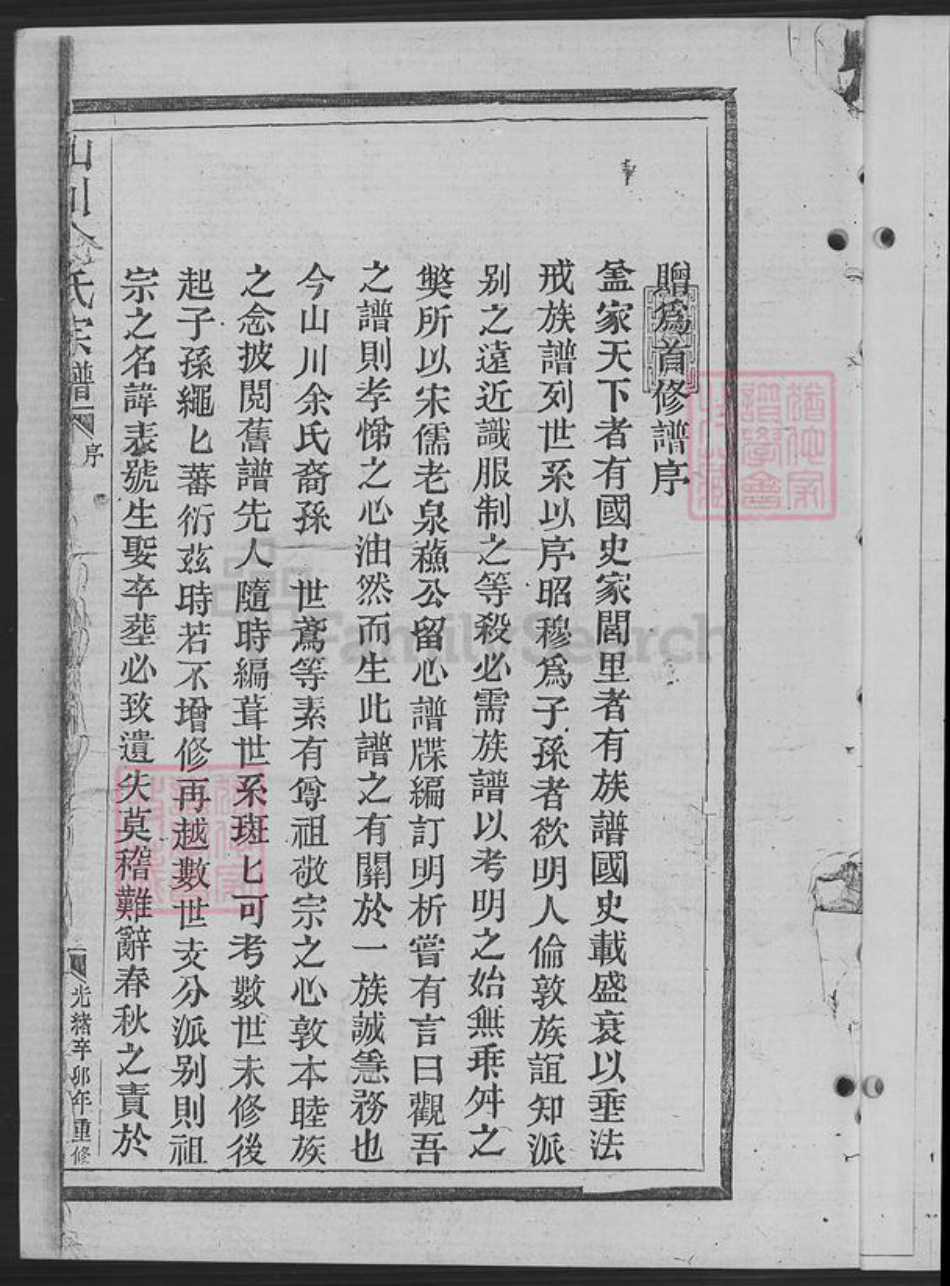 贈爲首修譜序
葢家天下者有國史家閭里者有族譜國史載盛衰以垂法
戒族譜列世系以序昭穆爲子孫者欲明人倫敦族誼知派
别之遠近識服制之等殺必需族譜以考明之始無乖舛之
獘所以宋儒老泉蘓公留心譜牒編訂明析嘗有言曰觀吾
之譜則孝悌之心油然而生此譜之有關於一族誠急務也
今山川余氏裔孫 世鳶等素有尊祖敬宗之心敦本睦族
之念披閱舊譜先人隨時編葺世系班匕可考數世未修後
起子孫繩匕蕃衍玆時若不增修再越數世支分派别則祖
宗之名諱表號生娶卒塟必致遺失莫稽難辭春秋之責於
山川余氏宗譜
序
光緒辛卯年重修
FamilySearch